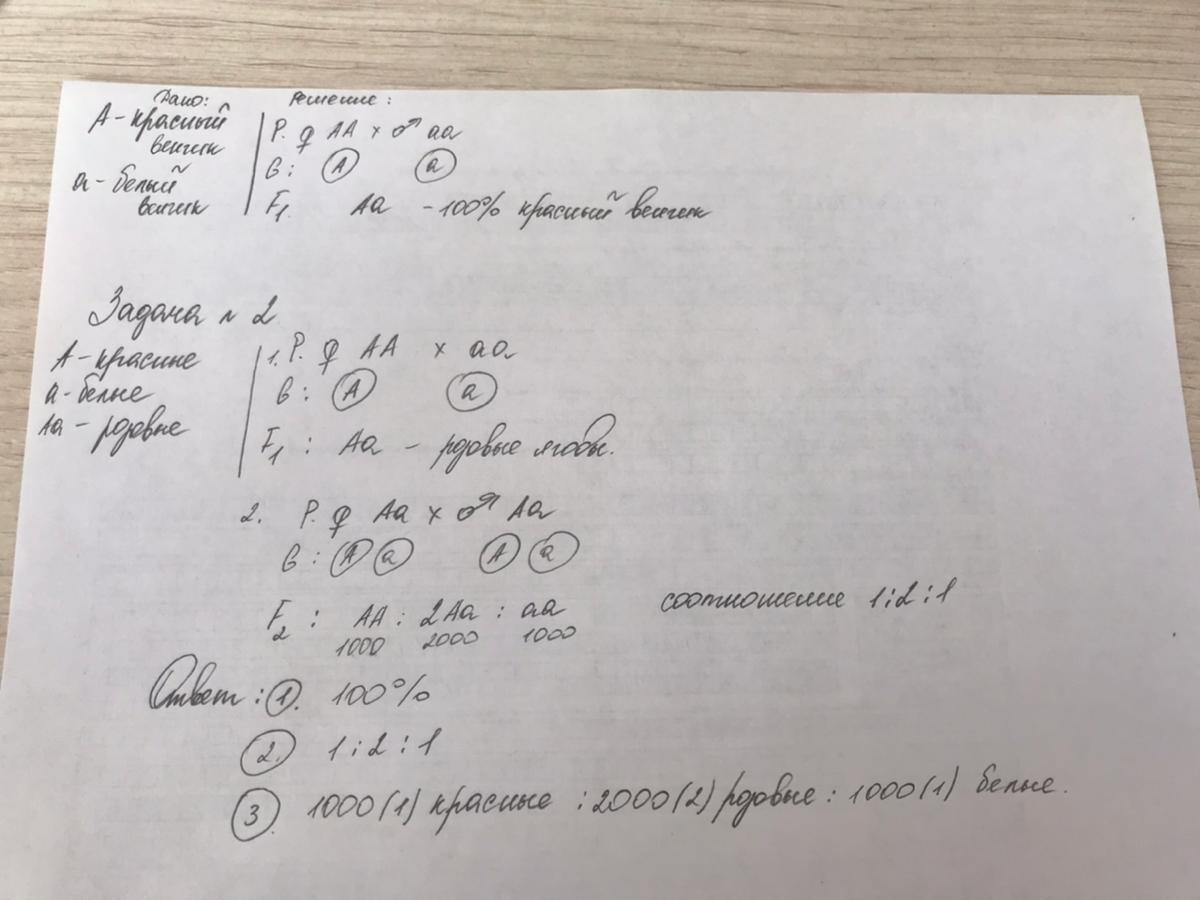 Дано: Решение:
А - красный венчик
P. ♀ AA × ♂ aa
G: A a
а - белый венчик
F1. Aa - 100% красный венчик
Задача №2
А - красные
1. P. ♀ AA × aa
а - белые
G: A a
Аа - розовые
F1: Aa - розовые ягоды.
2. P. ♀ Aa × ♂ Aa
G: A a A a
F2: AA : 2Aa : aa соотношение 1:2:1
1000 2000 1000
Ответ: 1. 100%
2. 1:2:1
3. 1000(1) красные : 2000(2) розовые : 1000(1) белые.